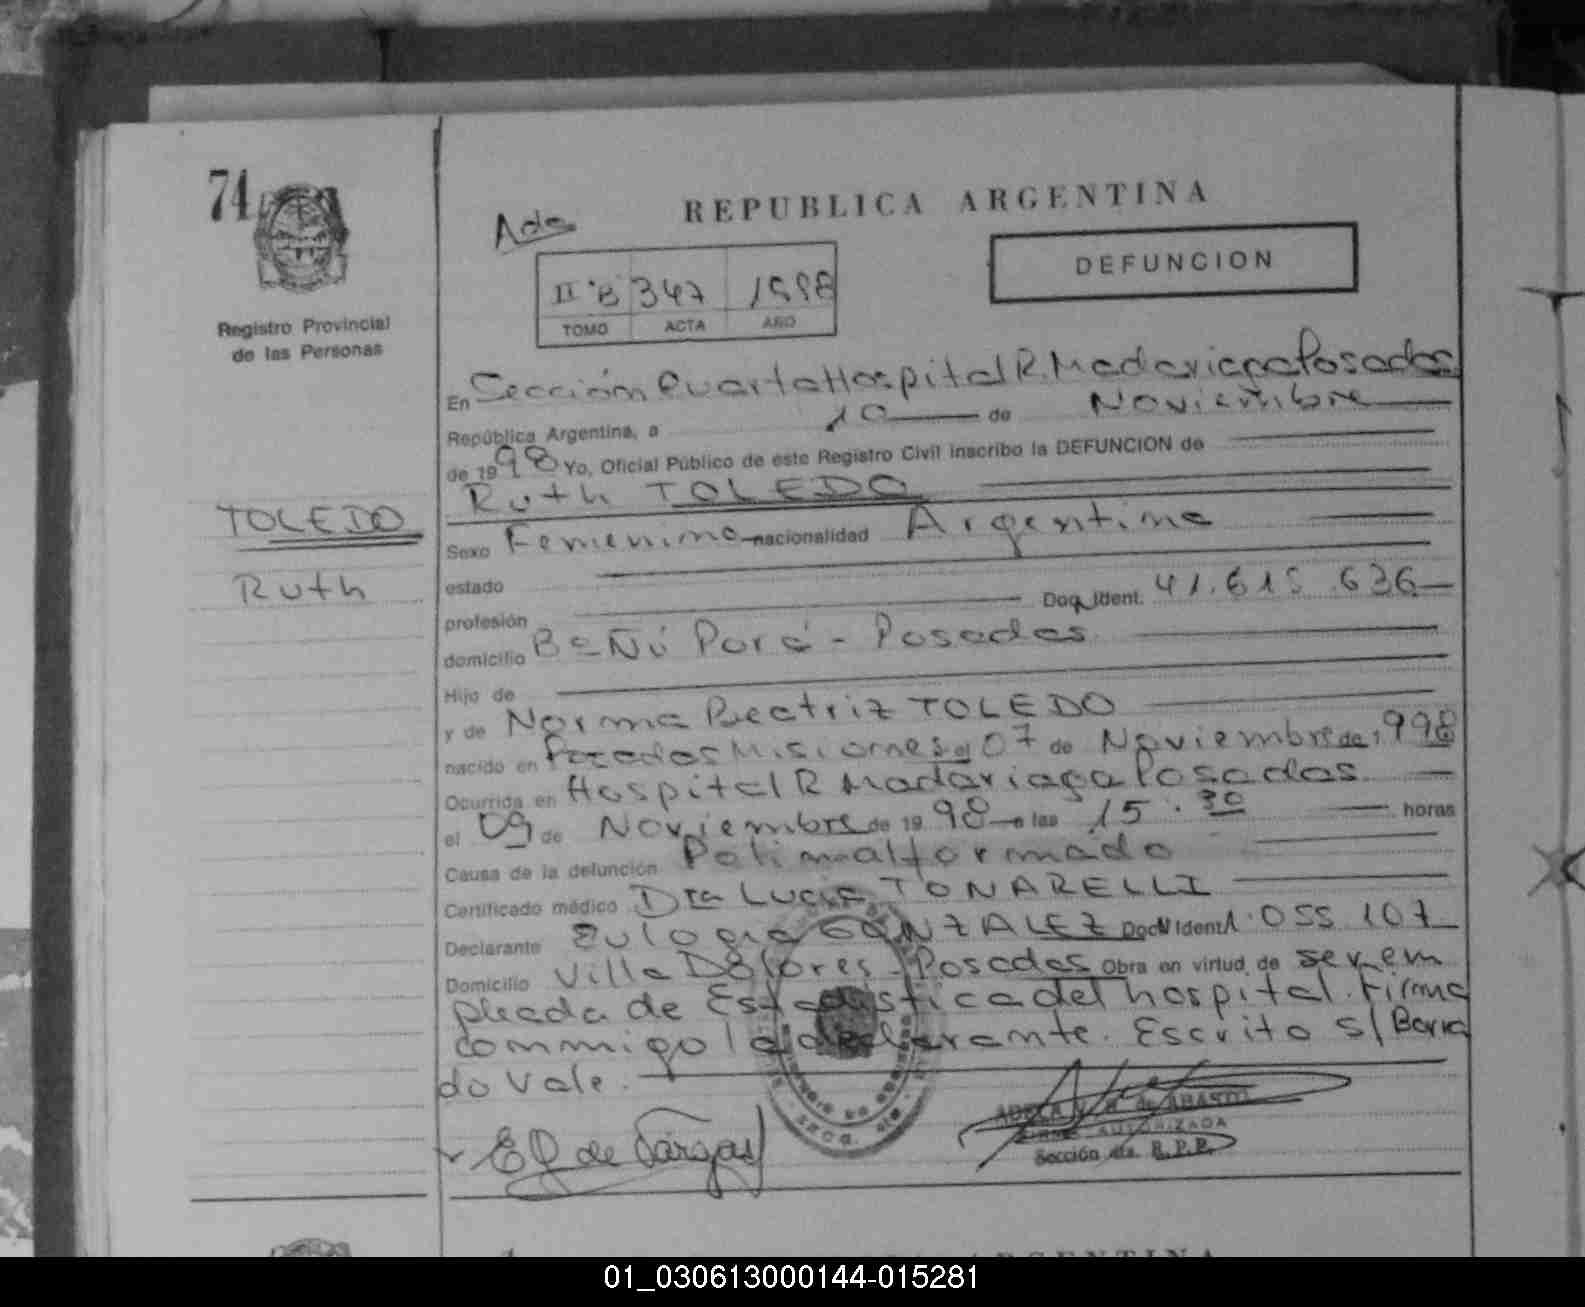 74
Registro Provincial
de las Personas
Ada
REPUBLICA ARGENTINA
DEFUNCION
IIºB 347 1998
TOMO ACTA AÑO
En Sección Cuarta Hospital R. Madariaga Posadas
República Argentina, a 10 de Noviembre
de 1998 Yo, Oficial Público de este Registro Civil inscribo la DEFUNCION de
Ruth TOLEDO
TOLEDO
Ruth
Sexo Femenino nacionalidad Argentina
estado
profesión Doc. Ident. 41.615.636
domicilio Bañú Porá - Posadas
Hijo de
y de Norma Beatriz TOLEDO
nacido en Posadas Misiones el 07 de Noviembre de 1998
Ocurrida en Hospital R Madariaga Posadas
el 09 de Noviembre de 1998 a las 15.30 horas
Causa de la defunción Polimalformado
Certificado médico Dra Lucia TONARELLI
Declarante Eulogia GONZALEZ Doc. Ident. 1.055.107
Domicilio Villa Dolores - Posadas Obra en virtud de ser em
pleada de Estadística del hospital. Firma
conmigo la declarante. Escrito s/ Borra
do vale.
EG de Vargas
DE ABASTO
FIRMA AUTORIZADA
Sección 4ta. R.P.P.
REPUBLICA ARGENTINA
01_030613000144-015281